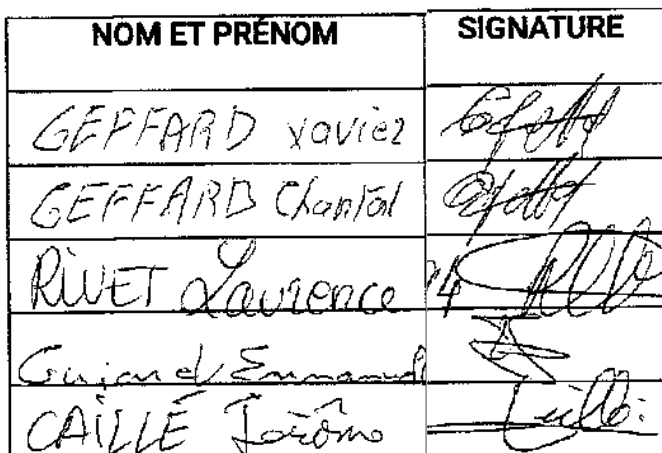 NOM ET PRÉNOM SIGNATURE
GEFFARD Xavier
GEFFARD Chantal
RIVET Laurence
Emmanuel
CAILLÉ Jérôme